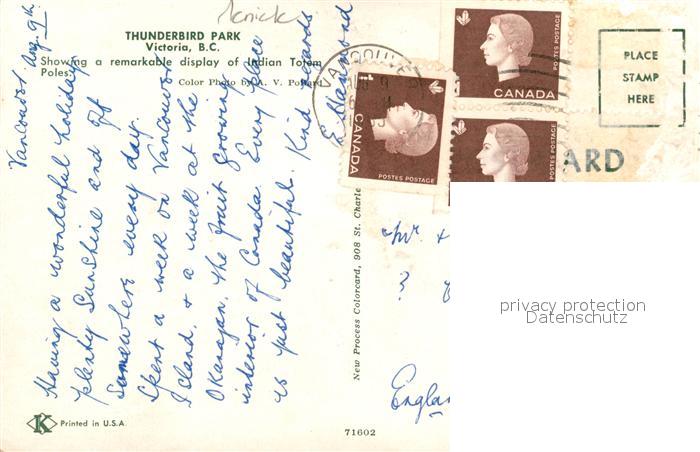 Kenick
THUNDERBIRD PARK
Victoria, B.C.
Showing a remarkable display of Indian Totem
Poles.
Color Photo by A. V. Pollard
Vancouver. Aug. 9th.
Having a wonderful holiday
plenty Sunshine and off
Somewhere every day.
Spent a week on Vancouver
Island. & a week at the
Okanagan. the fruit growing
interior of Canada. Every place
is just beautiful. Kind regards
E Hammond
VANCOUVER
1
CANADA
POSTES POSTAGE
CANADA
POSTES POSTAGE
CANADA
POSTES POSTAGE
PLACE
STAMP
HERE
ARD
New Process Colorcard, 908 St. Charle
Mr. &
3
Englan
privacy protection
Datenschutz
K
Printed in U.S.A.
71602